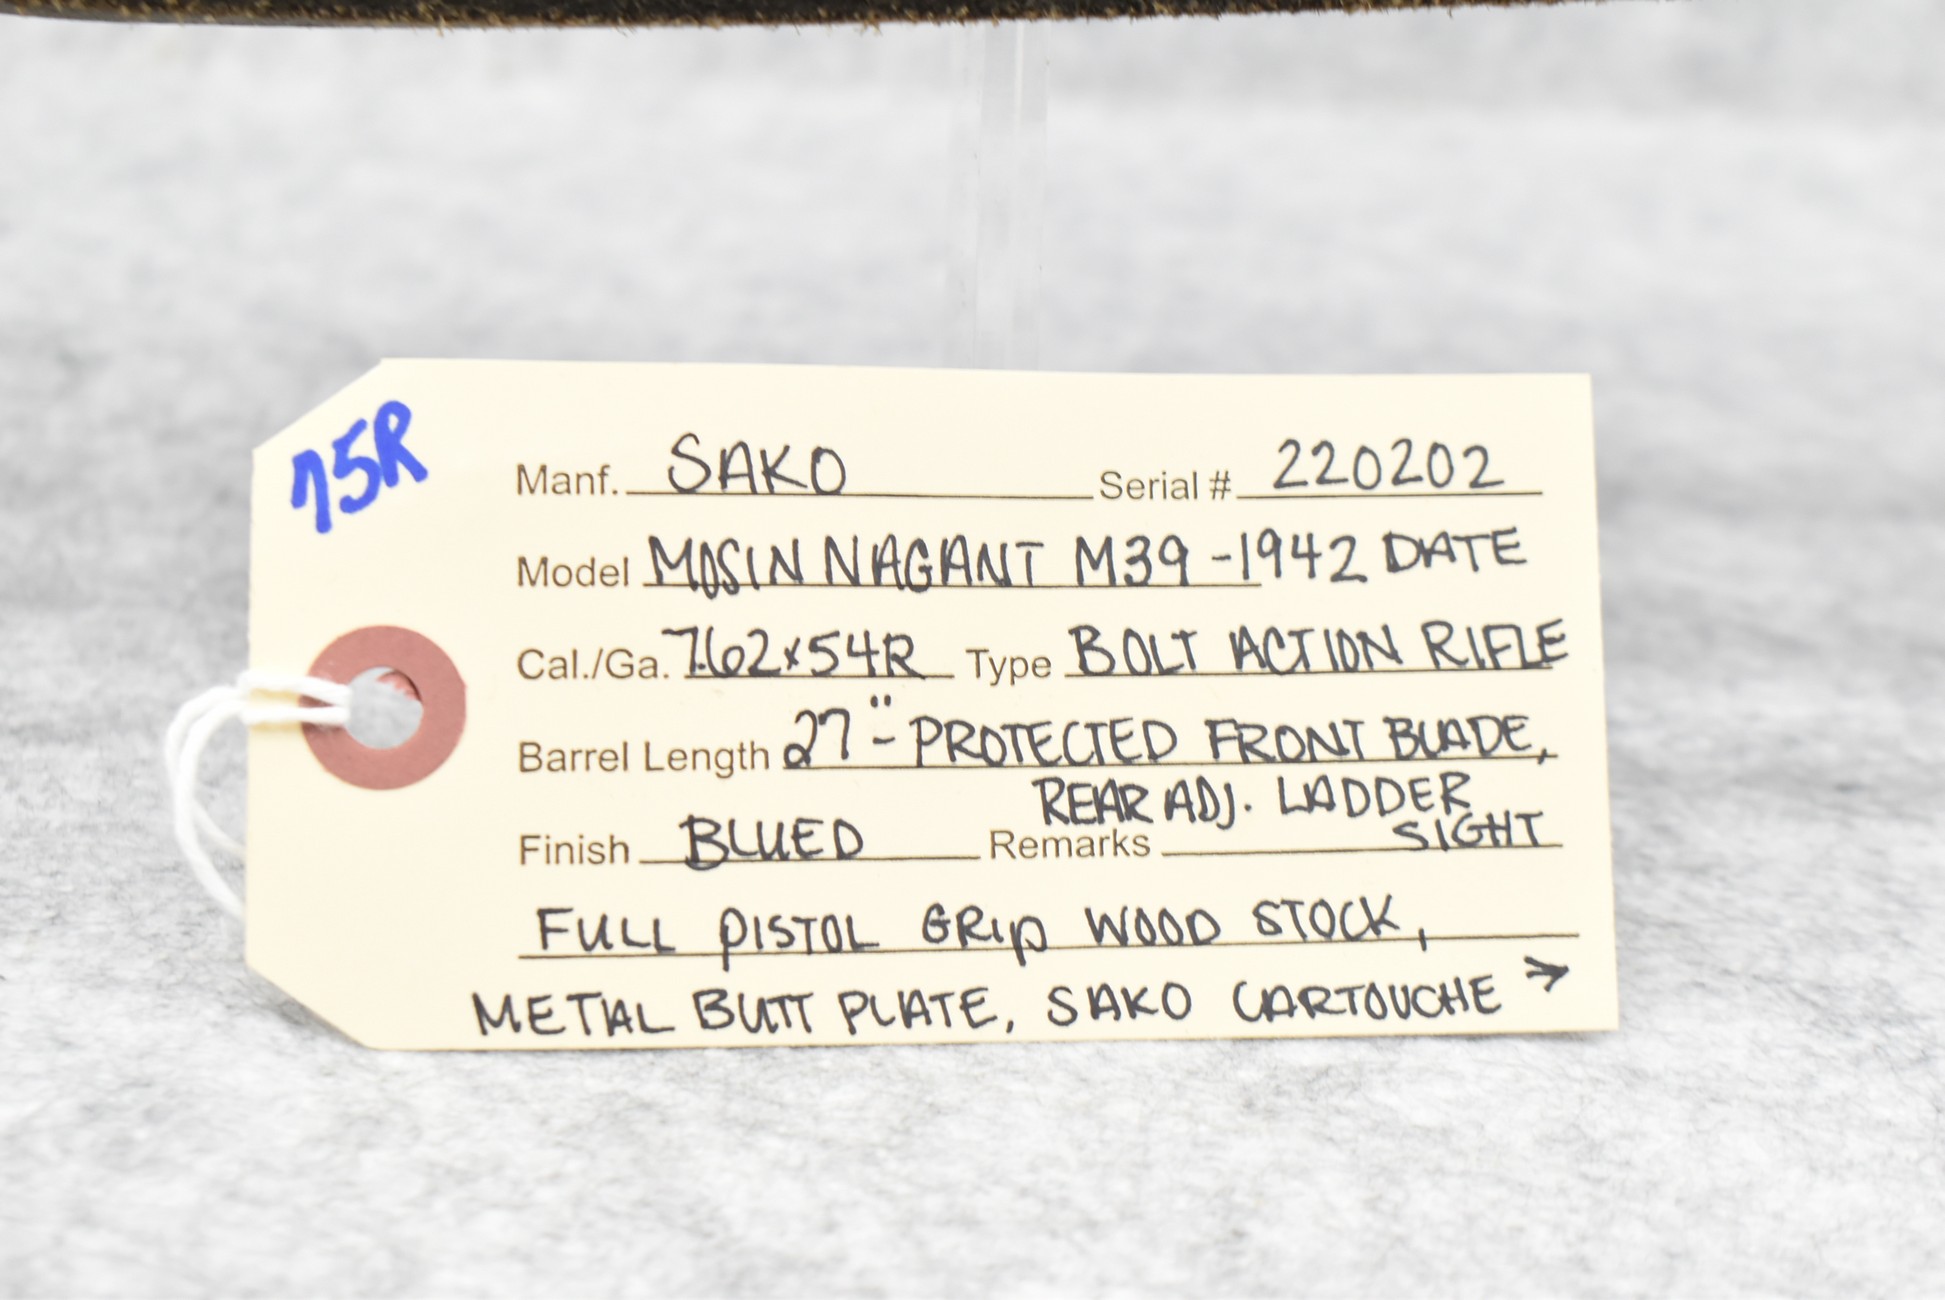 75R
Manf. SAKO Serial # 220202
Model MOSIN NAGANT M39 - 1942 DATE
Cal./Ga. 7.62x54R Type BOLT ACTION RIFLE
Barrel Length 27" - PROTECTED FRONT BLADE,
REAR ADJ. LADDER
Finish BLUED Remarks SIGHT
FULL PISTOL GRIP WOOD STOCK,
METAL BUTT PLATE, SAKO CARTOUCHE →